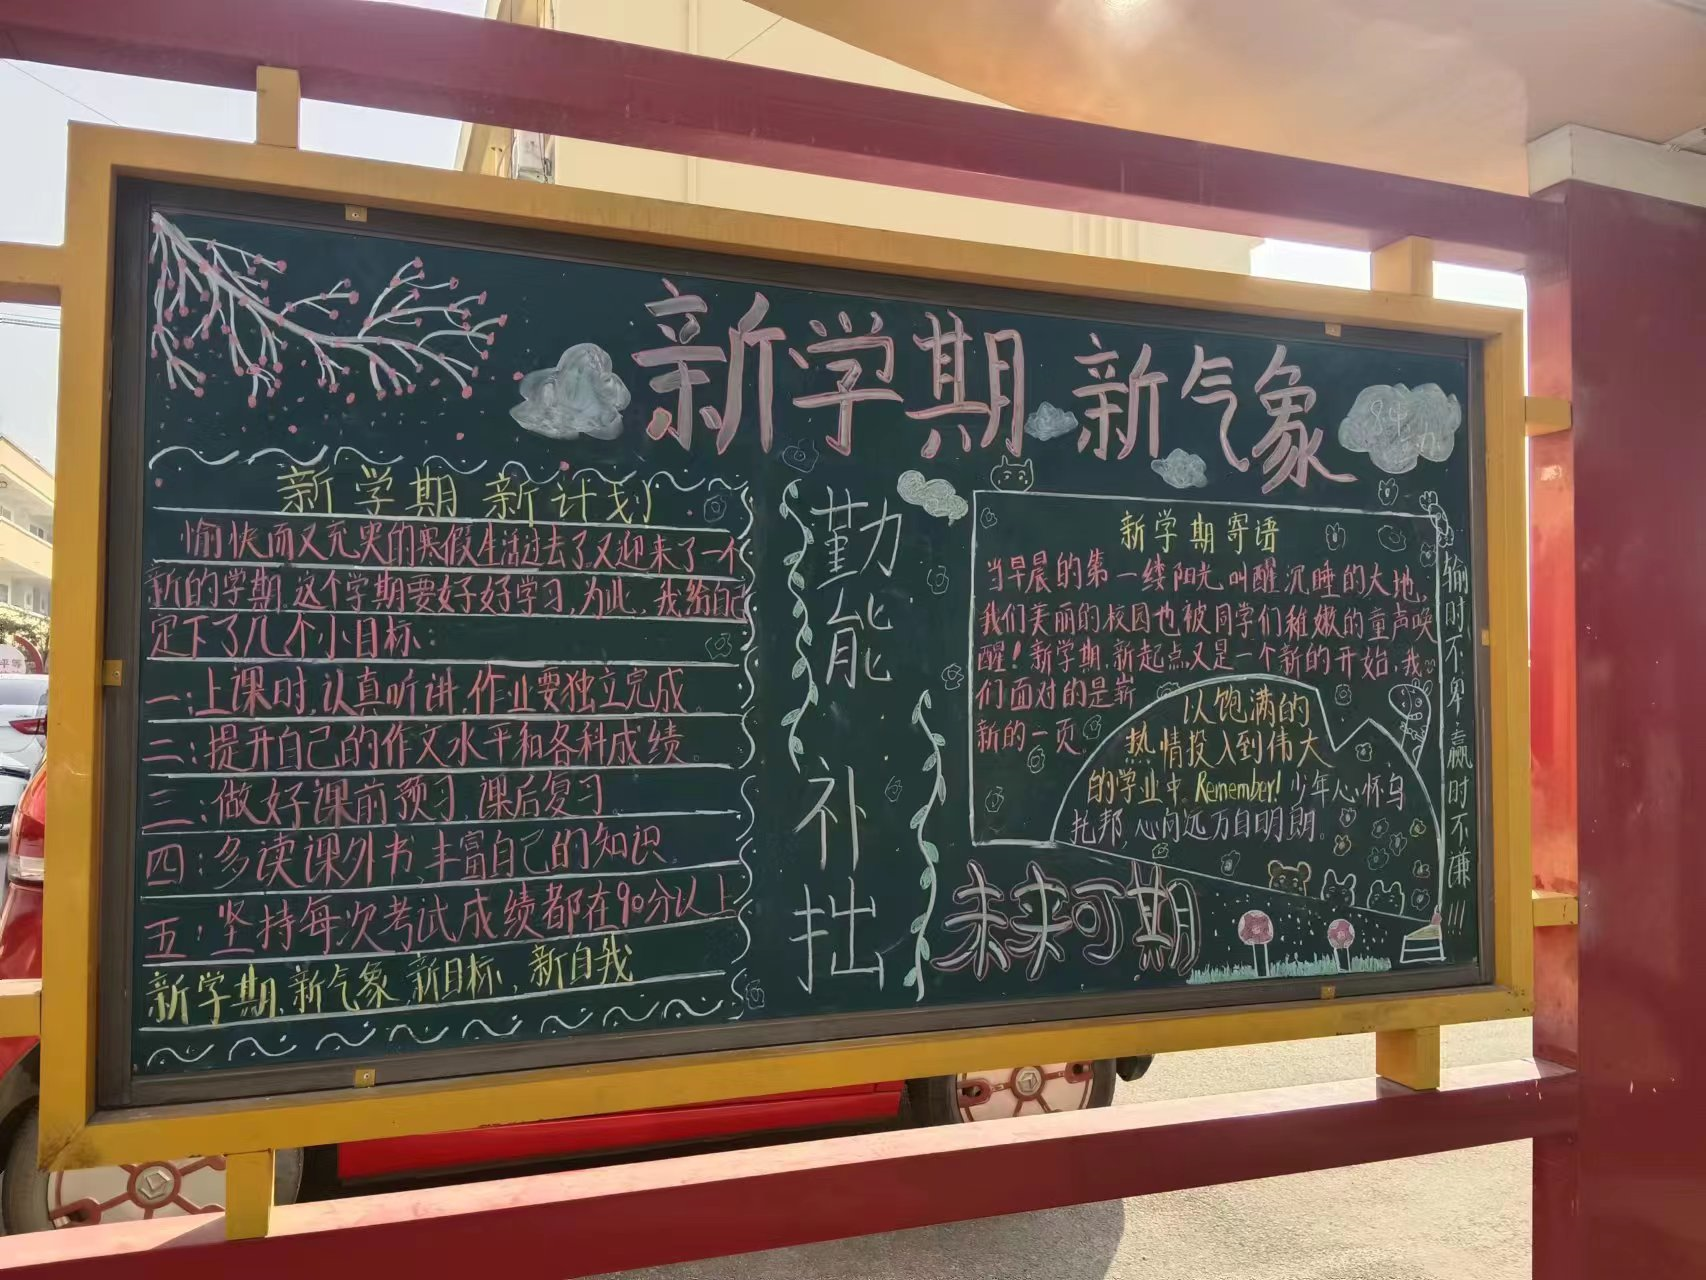 新学期 新气象
新学期 新计划
愉快而又充实的寒假生活过去了,又迎来了一个
新的学期.这个学期要好好学习,为此,我给自己
定下了几个小目标:
一:上课时,认真听讲.作业要独立完成
二:提开自己的作文水平和各科成绩.
三:做好课前预习,课后复习
四:多读课外书,丰富自己的知识.
五:坚持每次考试成绩都在90分以上
新学期,新气象,新目标,新自我
勤能补拙
新学期寄语
当早晨的第一缕阳光,叫醒沉睡的大地,
我们美丽的校园也被同学们稚嫩的童声唤
醒!新学期,新起点,又是一个新的开始,我
们面对的是崭
新的一页.
以饱满的
热情投入到伟大
的学业中.Remember!少年心怀乌
托邦,心向远方自明朗.
未来可期
输时不卑赢时不谦!!!
平等